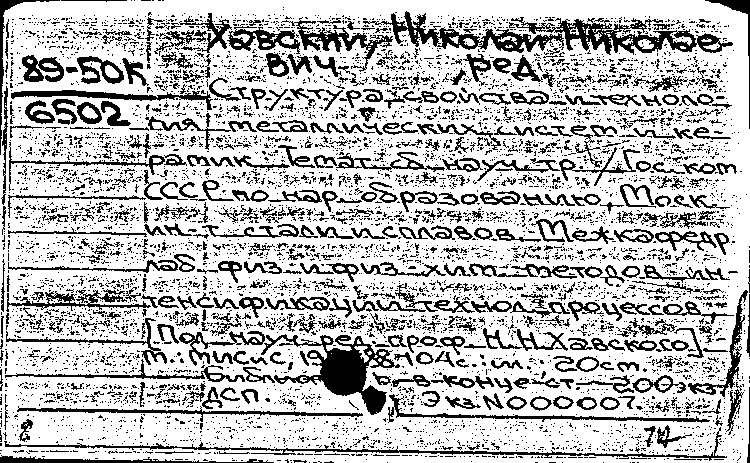 Хавский, Николай Николае-
89-50к вич, ред.
6502 Структура, свойства и техноло-
гия металлических систем и ке-
рамик. Темат. сб. науч. тр. / Гос. ком.
СССР по нар. образованию, Моск.
ин-т стали и сплавов. Межкафедр.
лаб. физ. и физ.-хим. методов ин-
тенсификации технол. процессов;
[Под науч. ред. проф. Н.Н.Хавского]
М.: МИСИС, 88. 104с.: ил.; 20см.
в конце ст. 200экз.
ДСП. Экз. N000007.